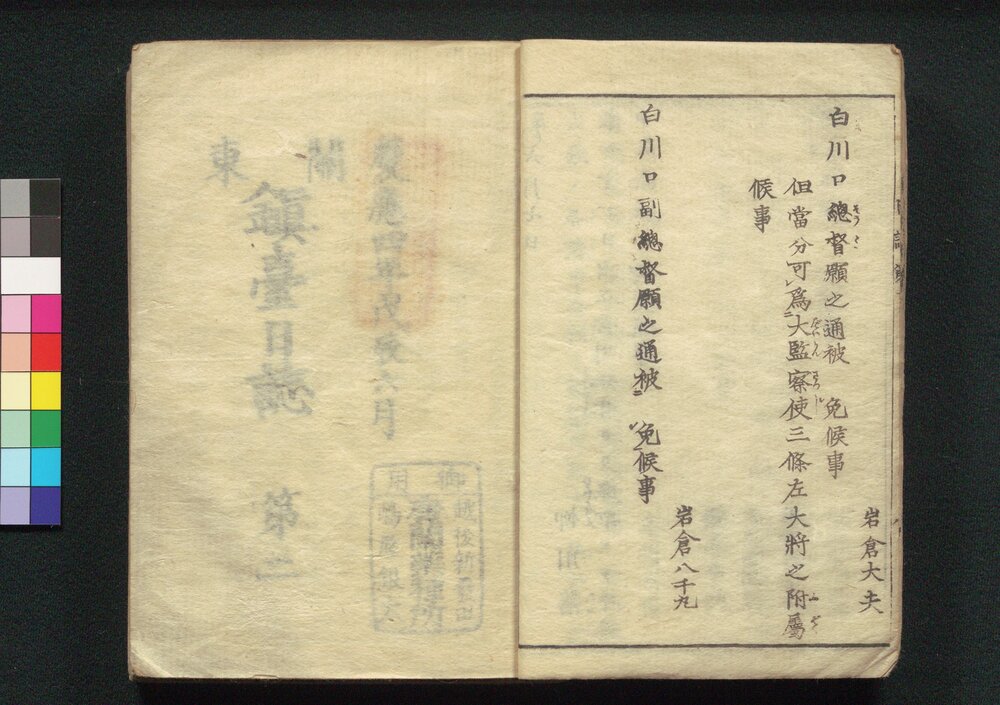 岩倉大夫
白川口總督願之通被　免候事
但當分可爲大監察使三條左大將之附屬
候事
岩倉八千丸
白川口副總督願之通被　免候事
慶應四年戊辰六月
關東
鎭臺日誌　第二